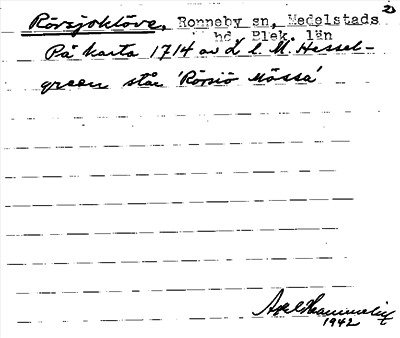 Rörsjöklöve, Ronneby sn, Medelstads
hd Blek. län
På karta 1714 av L. l. M. Hessel-
green står 'Rörsiö Måssa'
1942